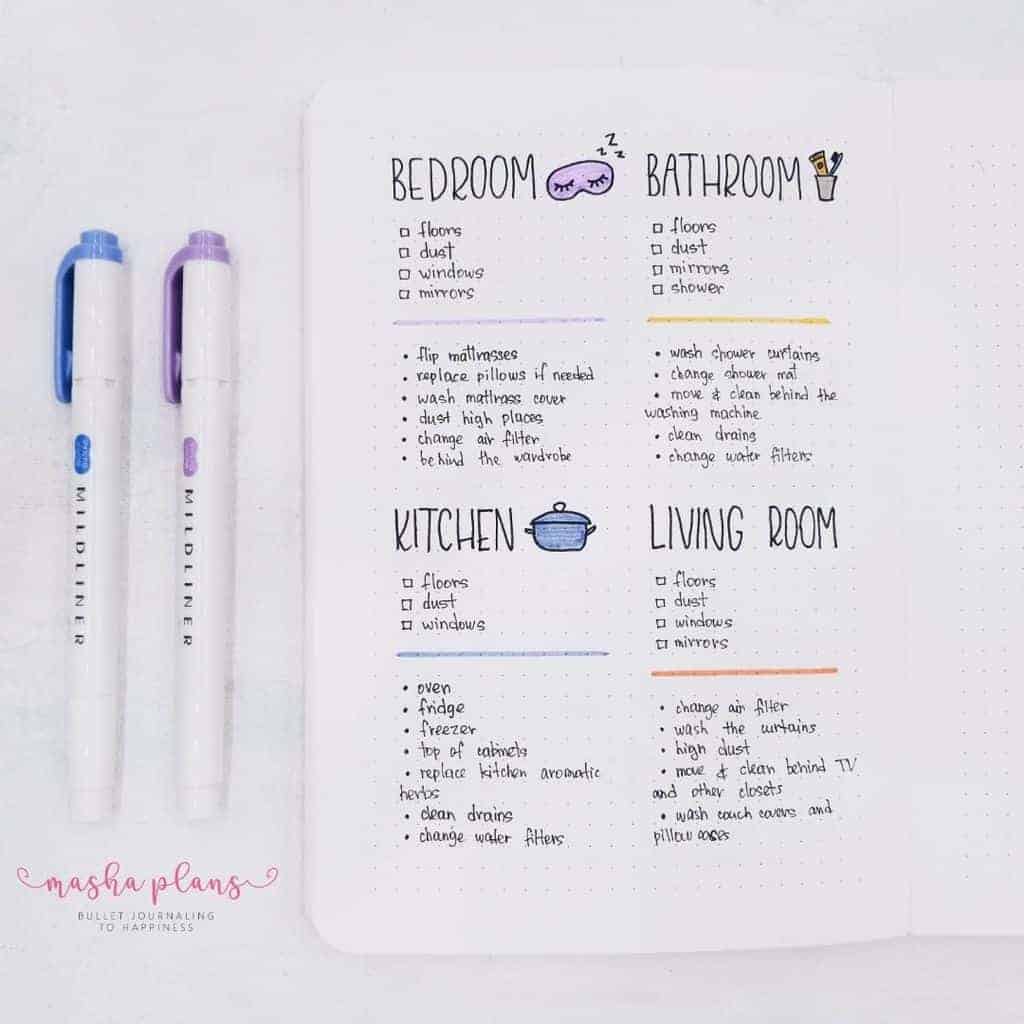 BEDROOM
z z z
floors
dust
windows
mirrors
flip mattrasses
replace pillows if needed
wash mattrass cover
dust high places
change air filter
behind the wardrobe
BATHROOM
floors
dust
mirrors
shower
wash shower curtains
change shower mat
move & clean behind the
washing machine
clean drains
change water filters
KITCHEN
floors
dust
windows
oven
fridge
freezer
top of cabinets
replace kitchen aromatic
herbs
clean drains
change water filters
LIVING ROOM
floors
dust
windows
mirrors
change air filter
wash the curtains
high dust
move & clean behind TV
and other closets
wash couch covers and
pillow cases
MILDLINER
MILDLINER
masha plans
BULLET JOURNALING
TO HAPPINESS